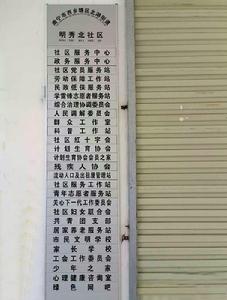 南宁市西乡塘区北湖街道
明秀北社区
社区服务中心
政务服务中心
社区党员服务站
劳动保障工作站
民政低保服务站
学雷锋志愿者服务站
综合治理协调委员会
人民调解委员会
群众工作室
科普工作站
社区红十字会
计划生育协会
计划生育协会会员之家
残疾人协会
流动人口及出租屋管理站
社区服务工作站
青年志愿者服务站
关心下一代工作委员会
社区妇女联合会
共青团支部
居家养老服务站
市民文明学校
家长学校
工会工作委员会
少年之家
心理健康咨询室
绿色网吧